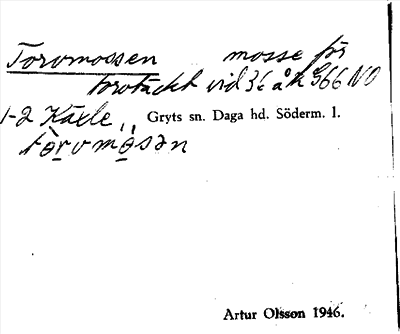 Torvmossen mosse för
torvtäckt vid 36 å k 966 NO
1-2 Käxle, Gryts sn. Daga hd. Söderm. l.
tòrvmo̲sən
Artur Olsson 1946.